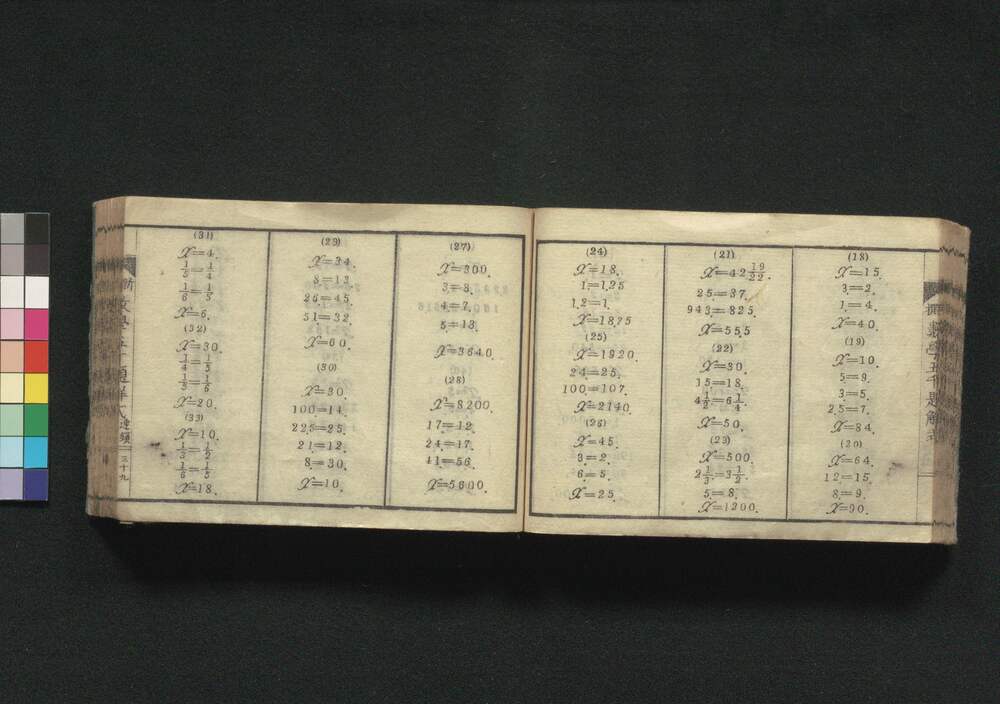 (18)
X=15.
3=2.
1=4.
X=40.
(19)
X=10.
5=9.
3=5.
2.5=7.
X=84.
(20)
X=64.
12=15.
8=9.
X=90.
(21)
X=42 19/22.
25=37.
943=825.
X=55.5
(22)
X=30.
15=18.
4 1/2=6 1/4.
X=50.
(23)
X=500.
2 1/3=3 1/2.
5=8.
X=1200.
(24)
X=18.
1=1.25
1.2=1.
X=18.75
(25)
X=1920.
24=25.
100=107.
X=2140.
(26)
X=45.
3=2.
6=5.
X=25.
(27)
X=300.
3=8.
4=7.
5=13.
X=3640.
(28)
X=8200.
17=12.
24=17.
41=56.
X=5600.
(29)
X=34.
8=13.
26=45.
51=32.
X=60.
(30)
X=30.
100=14.
22.5=25.
21=12.
8=30.
X=10.
(31)
X=4.
1/5=1/4
1/6=1/5.
X=6.
(32)
X=30.
1/4=1/5
1/5=1/6
X=20.
(33)
X=10.
1/3=1/2
1/6=1/5
X=18.
三十九